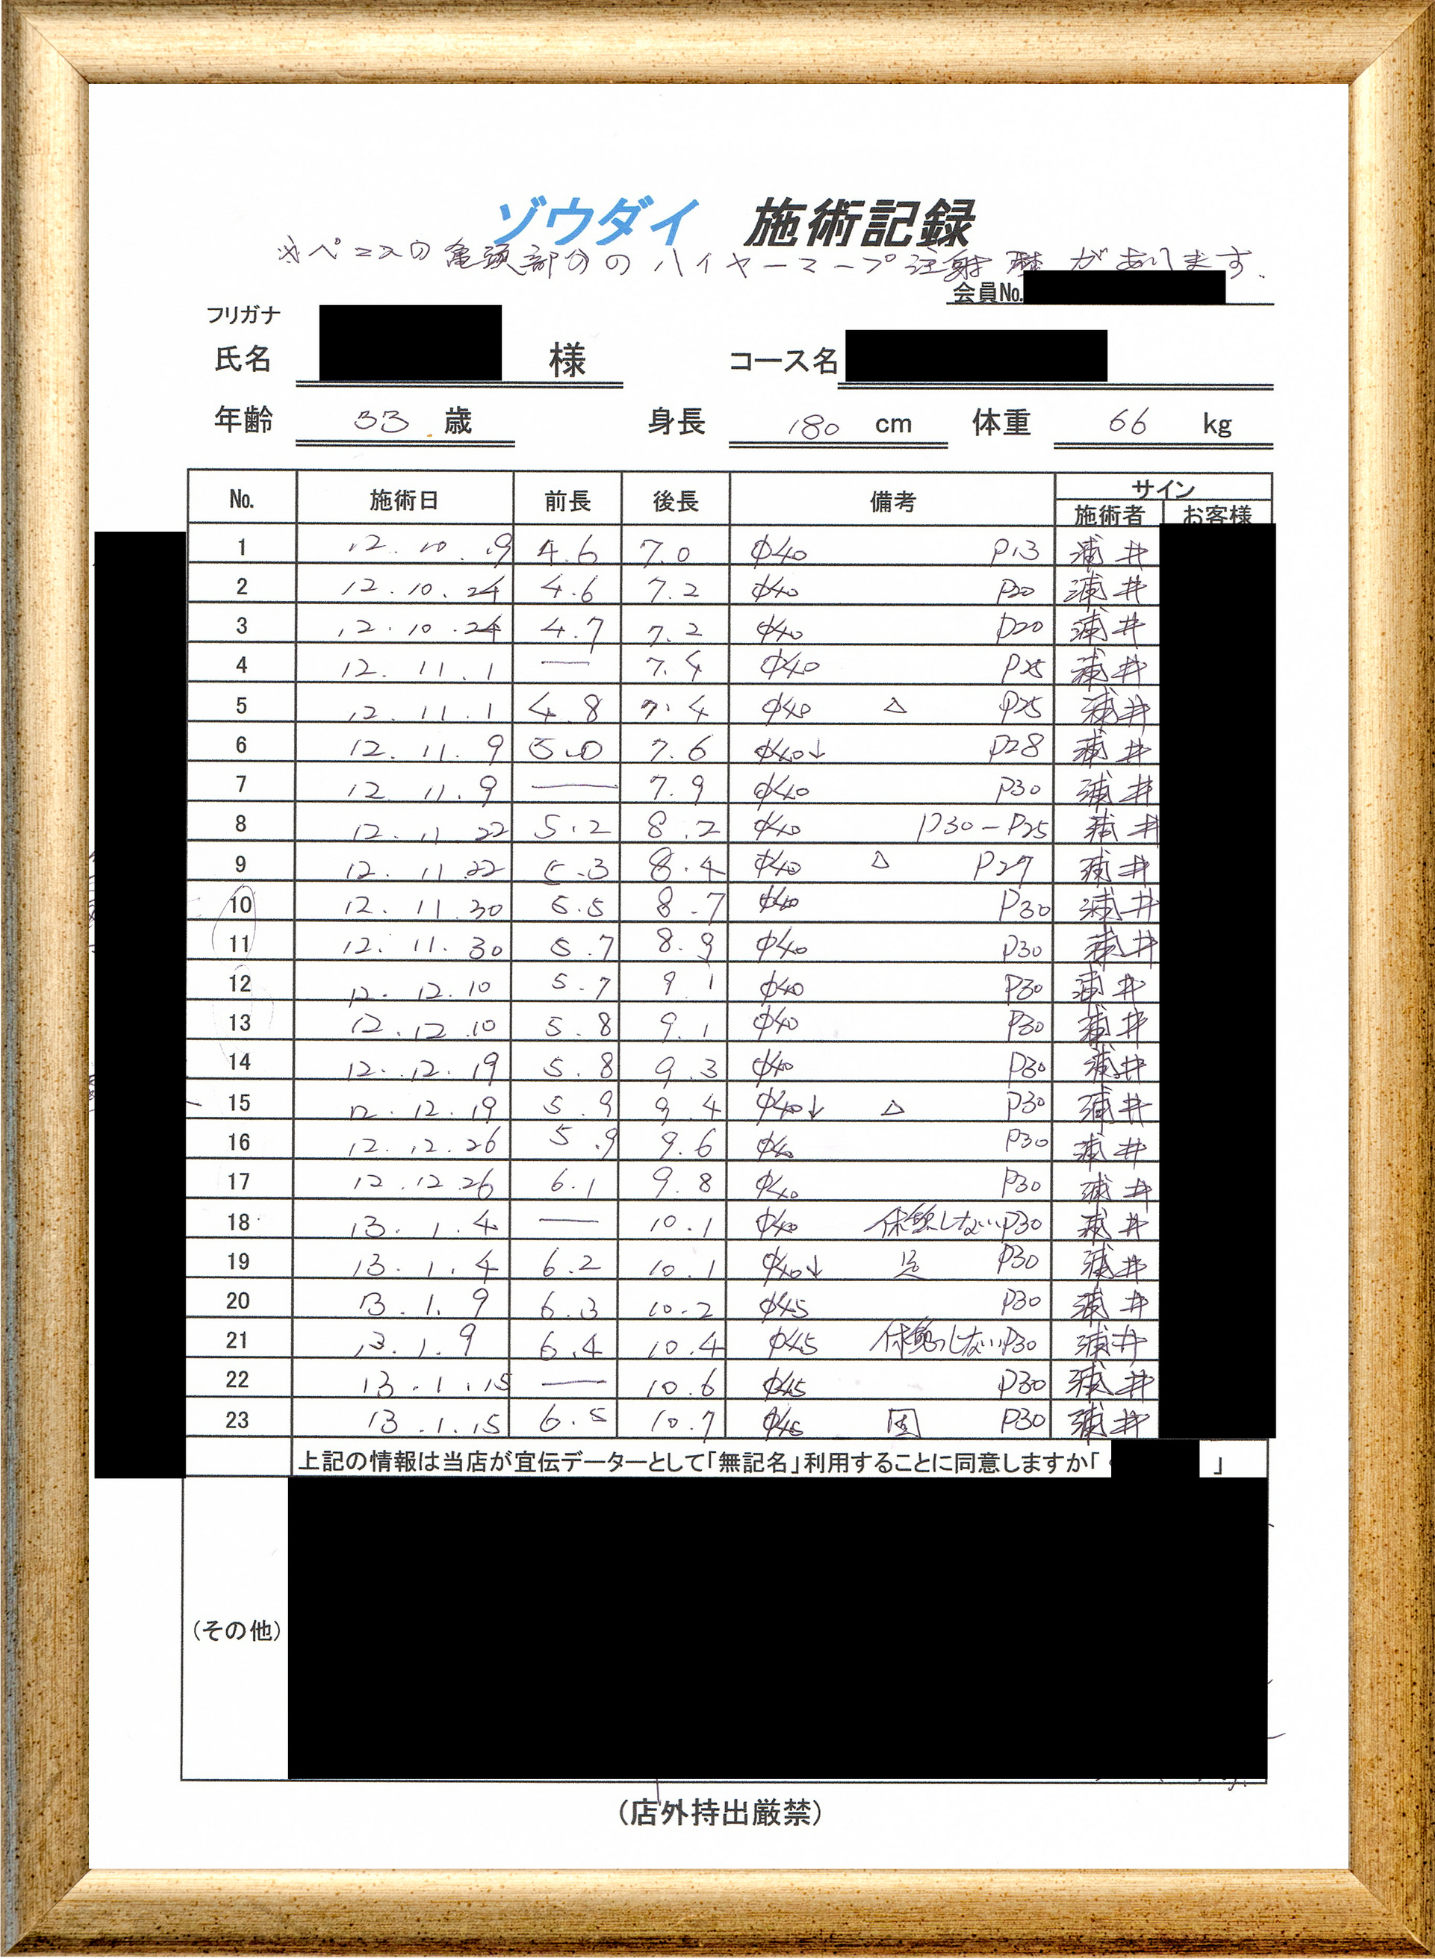 ゾウダイ 施術記録
※ペニスの亀頭部分のハイヤーマープ注射歴があります.
会員No.
フリガナ
氏名 様 コース名
年齢 33 歳 身長 180 cm 体重 66 kg
No. 施術日 前長 後長 備考 サイン
施術者 お客様
1 12.10.19 4.6 7.0 φ40 P13 浦井
2 12.10.24 4.6 7.2 φ40 P20 浦井
3 12.10.24 4.7 7.2 φ40 P20 浦井
4 12.11.1 — 7.4 φ40 P25 浦井
5 12.11.1 4.8 7.4 φ40 △ P25 浦井
6 12.11.9 5.0 7.6 φ40↓ P28 浦井
7 12.11.9 — 7.9 φ40 P30 浦井
8 12.11.22 5.2 8.2 φ40 P30-P25 浦井
9 12.11.22 5.3 8.4 φ40 △ P27 浦井
10 12.11.30 5.5 8.7 φ40 P30 浦井
11 12.11.30 5.7 8.9 φ40 P30 浦井
12 12.12.10 5.7 9.1 φ40 P30 浦井
13 12.12.10 5.8 9.1 φ40 P30 浦井
14 12.12.19 5.8 9.3 φ40 P30 浦井
15 12.12.19 5.9 9.4 φ40↓ △ P30 浦井
16 12.12.26 5.9 9.6 φ40 P30 浦井
17 12.12.26 6.1 9.8 φ40 P30 浦井
18 13.1.4 — 10.1 φ40 休憩しない P30 浦井
19 13.1.4 6.2 10.1 φ40↓ P30 浦井
20 13.1.9 6.3 10.2 φ45 P30 浦井
21 13.1.9 6.4 10.4 φ45 休憩しない P30 浦井
22 13.1.15 — 10.6 φ45 P30 浦井
23 13.1.15 6.5 10.7 φ45 P30 浦井
上記の情報は当店が宣伝データーとして「無記名」利用することに同意しますか「 」
(その他)
(店外持出厳禁)